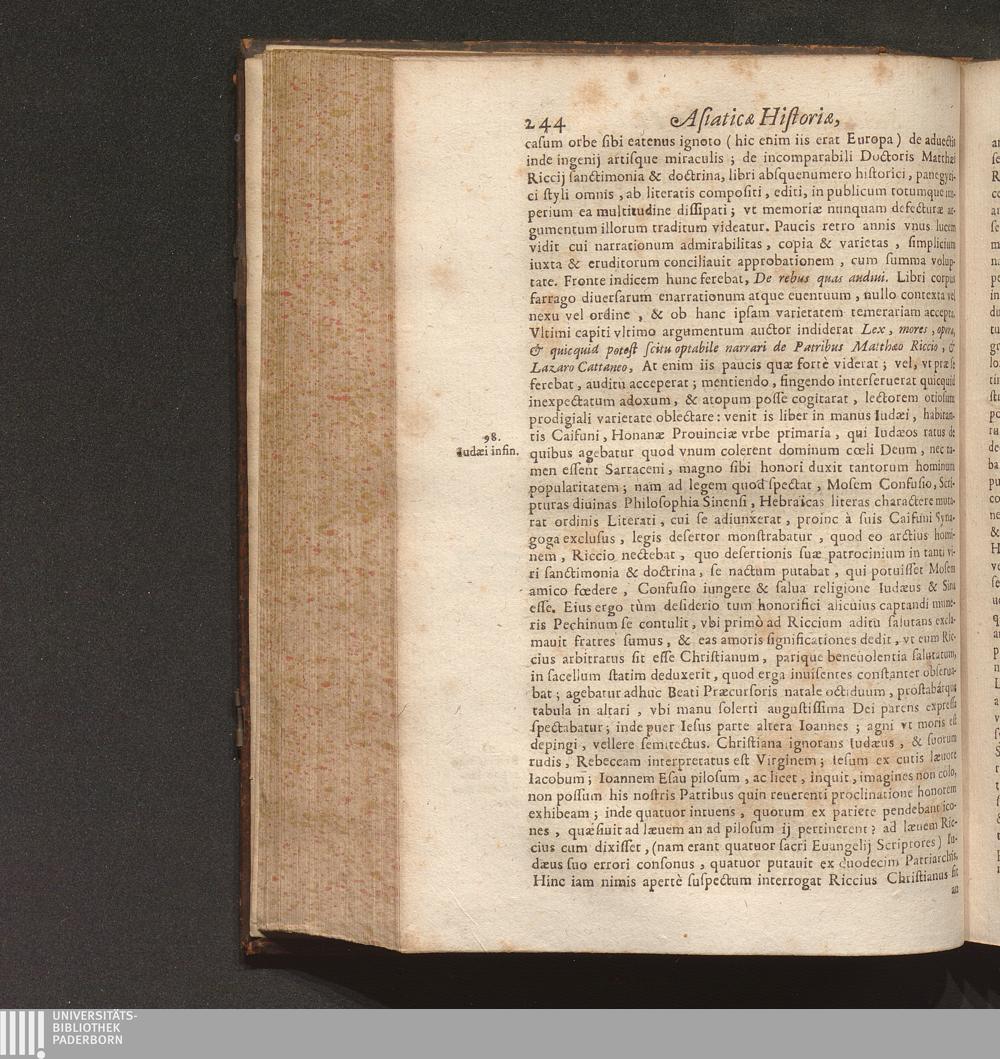 244 Asiaticæ Historiæ,
casum orbe sibi eatenus ignoto (hic enim iis erat Europa) de aduectis
inde ingenij artisque miraculis; de incomparabili Doctoris Matthæi
Riccij sanctimonia & doctrina, libri absquenumero historici, panegyri-
ci styli omnis, ab literatis compositi, editi, in publicum totumque im-
perium ea multitudine dissipati; vt memoriæ nunquam defecturæ ar-
gumentum illorum traditum videatur. Paucis retro annis vnus lucem
vidit cui narrationum admirabilitas, copia & varietas, simplicium
iuxta & eruditorum conciliauit approbationem, cum summa volup-
tate. Fronte indicem hunc ferebat, De rebus quas audiui. Libri corpus
farrago diuersarum enarrationum atque euentuum, nullo contexta vel
nexu vel ordine, & ob hanc ipsam varietatem temerariam accepta.
Vltimi capiti vltimo argumentum auctor indiderat Lex, mores, opera,
& quicquid potest scitu optabile narrari de Patribus Matthæo Riccio, &
Lazaro Cattaneo, At enim iis paucis quæ fortè viderat; vel, vt præ se
ferebat, auditu acceperat; mentiendo, fingendo interseruerat quicquid
inexpectatum adoxum, & atopum posse cogitarat, lectorem otiosum
prodigiali varietate oblectare: venit is liber in manus Iudæi, habitan-
98.
Iudæi insin.
tis Caifuni, Honanæ Prouinciæ vrbe primaria, qui Iudæos ratus de
quibus agebatur quod vnum colerent dominum cœli Deum, nec ta-
men essent Sarraceni, magno sibi honori duxit tantorum hominum
popularitatem; nam ad legem quod spectat, Mosem Confusio, Scri-
pturas diuinas Philosophia Sinensi, Hebraicas literas charactere muta-
rat ordinis Literati, cui se adiunxerat, proinc à suis Caifuni Syna-
goga exclusus, legis desertor monstrabatur, quod eo arctius homi-
nem, Riccio nectebat, quo desertionis suæ patrocinium in tanti vi-
ri sanctimonia & doctrina, se nactum putabat, qui potuisset Mosem
amico fœdere, Confusio iungere & salua religione Iudæus & Sina
esse. Eius ergo tùm desiderio tum honorifici alicuius captandi mune-
ris Pechinum se contulit, vbi primò ad Riccium aditu salutans excla-
mauit fratres sumus, & eas amoris significationes dedit, vt eum Ric-
cius arbitratus sit esse Christianum, parique beneuolentia salutatum,
in sacellum statim deduxerit, quod erga inuisentes constanter obserua-
bat; agebatur adhuc Beati Præcursoris natale octiduum, prostabatque
tabula in altari, vbi manu solerti augustissima Dei parens expressa
spectabatur; inde puer Iesus parte altera Ioannes; agni vt moris est
depingi, vellere semitectus. Christiana ignorans Iudæus, & suorum
rudis, Rebeccam interpretatus est Virginem; Iesum ex cutis læuore
Iacobum; Ioannem Esau pilosum, ac licet, inquit, imagines non colo,
non possum his nostris Patribus quin reuerenti proclinatione honorem
exhibeam; inde quatuor intuens, quorum ex pariete pendebant ico-
nes, quæsiuit ad læuem an ad pilosum ij pertinerent? ad læuem Ric-
cius cum dixisset, (nam erant quatuor sacri Euangelij Scriptores) Iu-
dæus suo errori consonus, quatuor putauit ex duodecim Patriarchis,
Hinc iam nimis apertè suspectum interrogat Riccius Christianus sit
an
UNIVERSITÄTS-
BIBLIOTHEK
PADERBORN